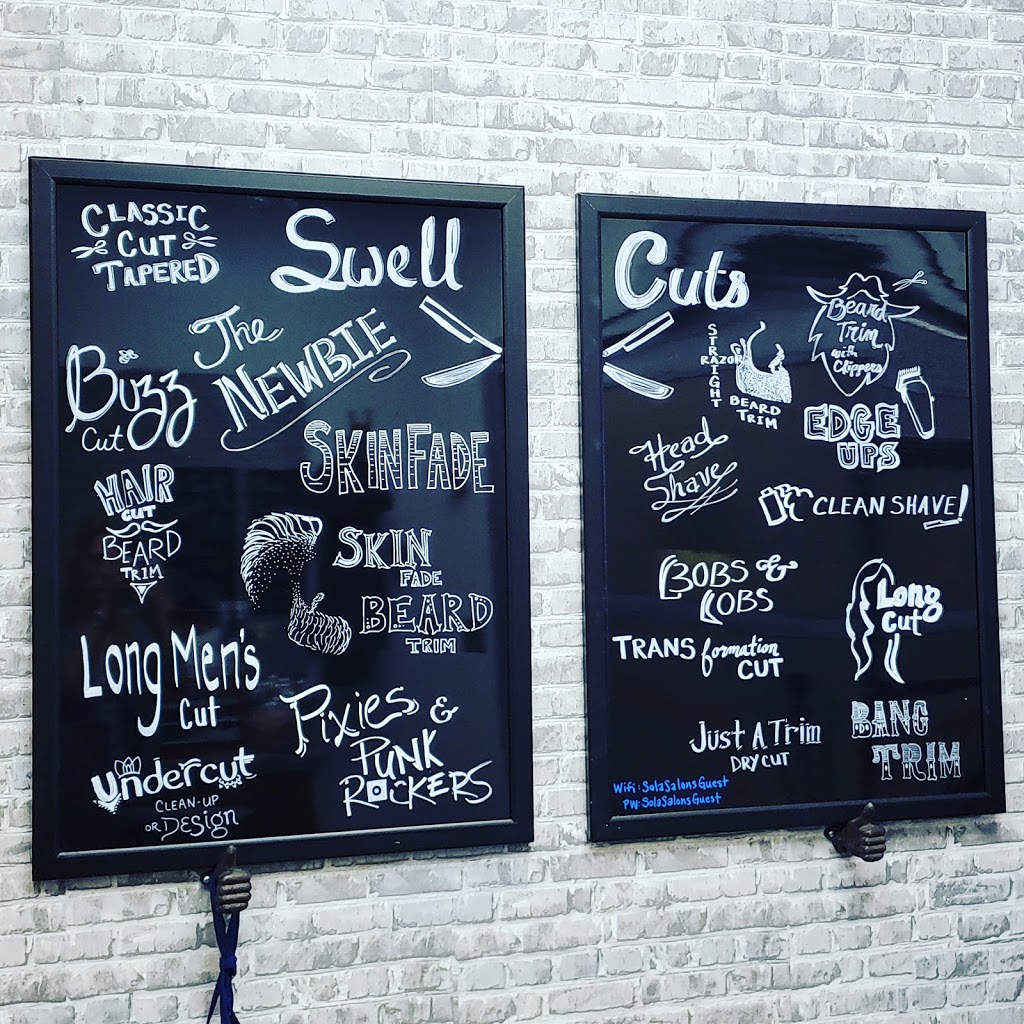 CLASSIC
CUT
TAPERED
Swell
The
NEWBIE
Buzz
Cut
SKINFADE
HAIR
CUT
BEARD
TRIM
SKIN
FADE
BEARD
TRIM
Long Men's
Cut
Pixies &
PUNK
ROCKERS
Undercut
CLEAN-UP
OR DESIGN
Cuts
STRAIGHT
RAZOR
BEARD
TRIM
Beard
Trim
with
Clippers
EDGE
UPS
Head
Shave
CLEAN SHAVE!
BOBS &
LOBS
Long
Cut
TRANSformation
CUT
Just A Trim
DRY CUT
BANG
TRIM
Wifi: SolaSalonsGuest
PW: SolaSalonsGuest